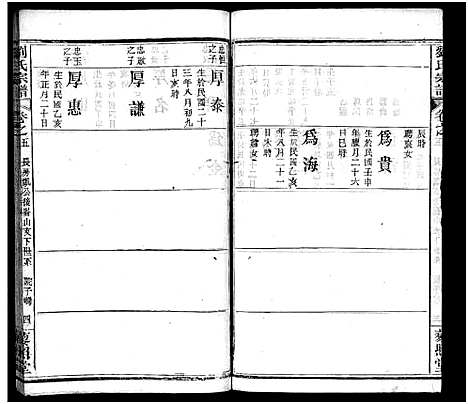 劉氏宗譜
卷之五
辰時
娶袁女
為貴
生於民國壬申
年臘月二十六
日巳時
為海
生於民國乙亥
年八月二十一
日未時
聘蕭女
葵照堂
忠恒
之子
厚泰
生於民國二十
三年八月初九
日亥時
忠啟
之子
厚謙
忠玉
之子
厚惠
生於民國乙亥
年正月二十日
劉氏宗譜
卷之五
四
葵照堂